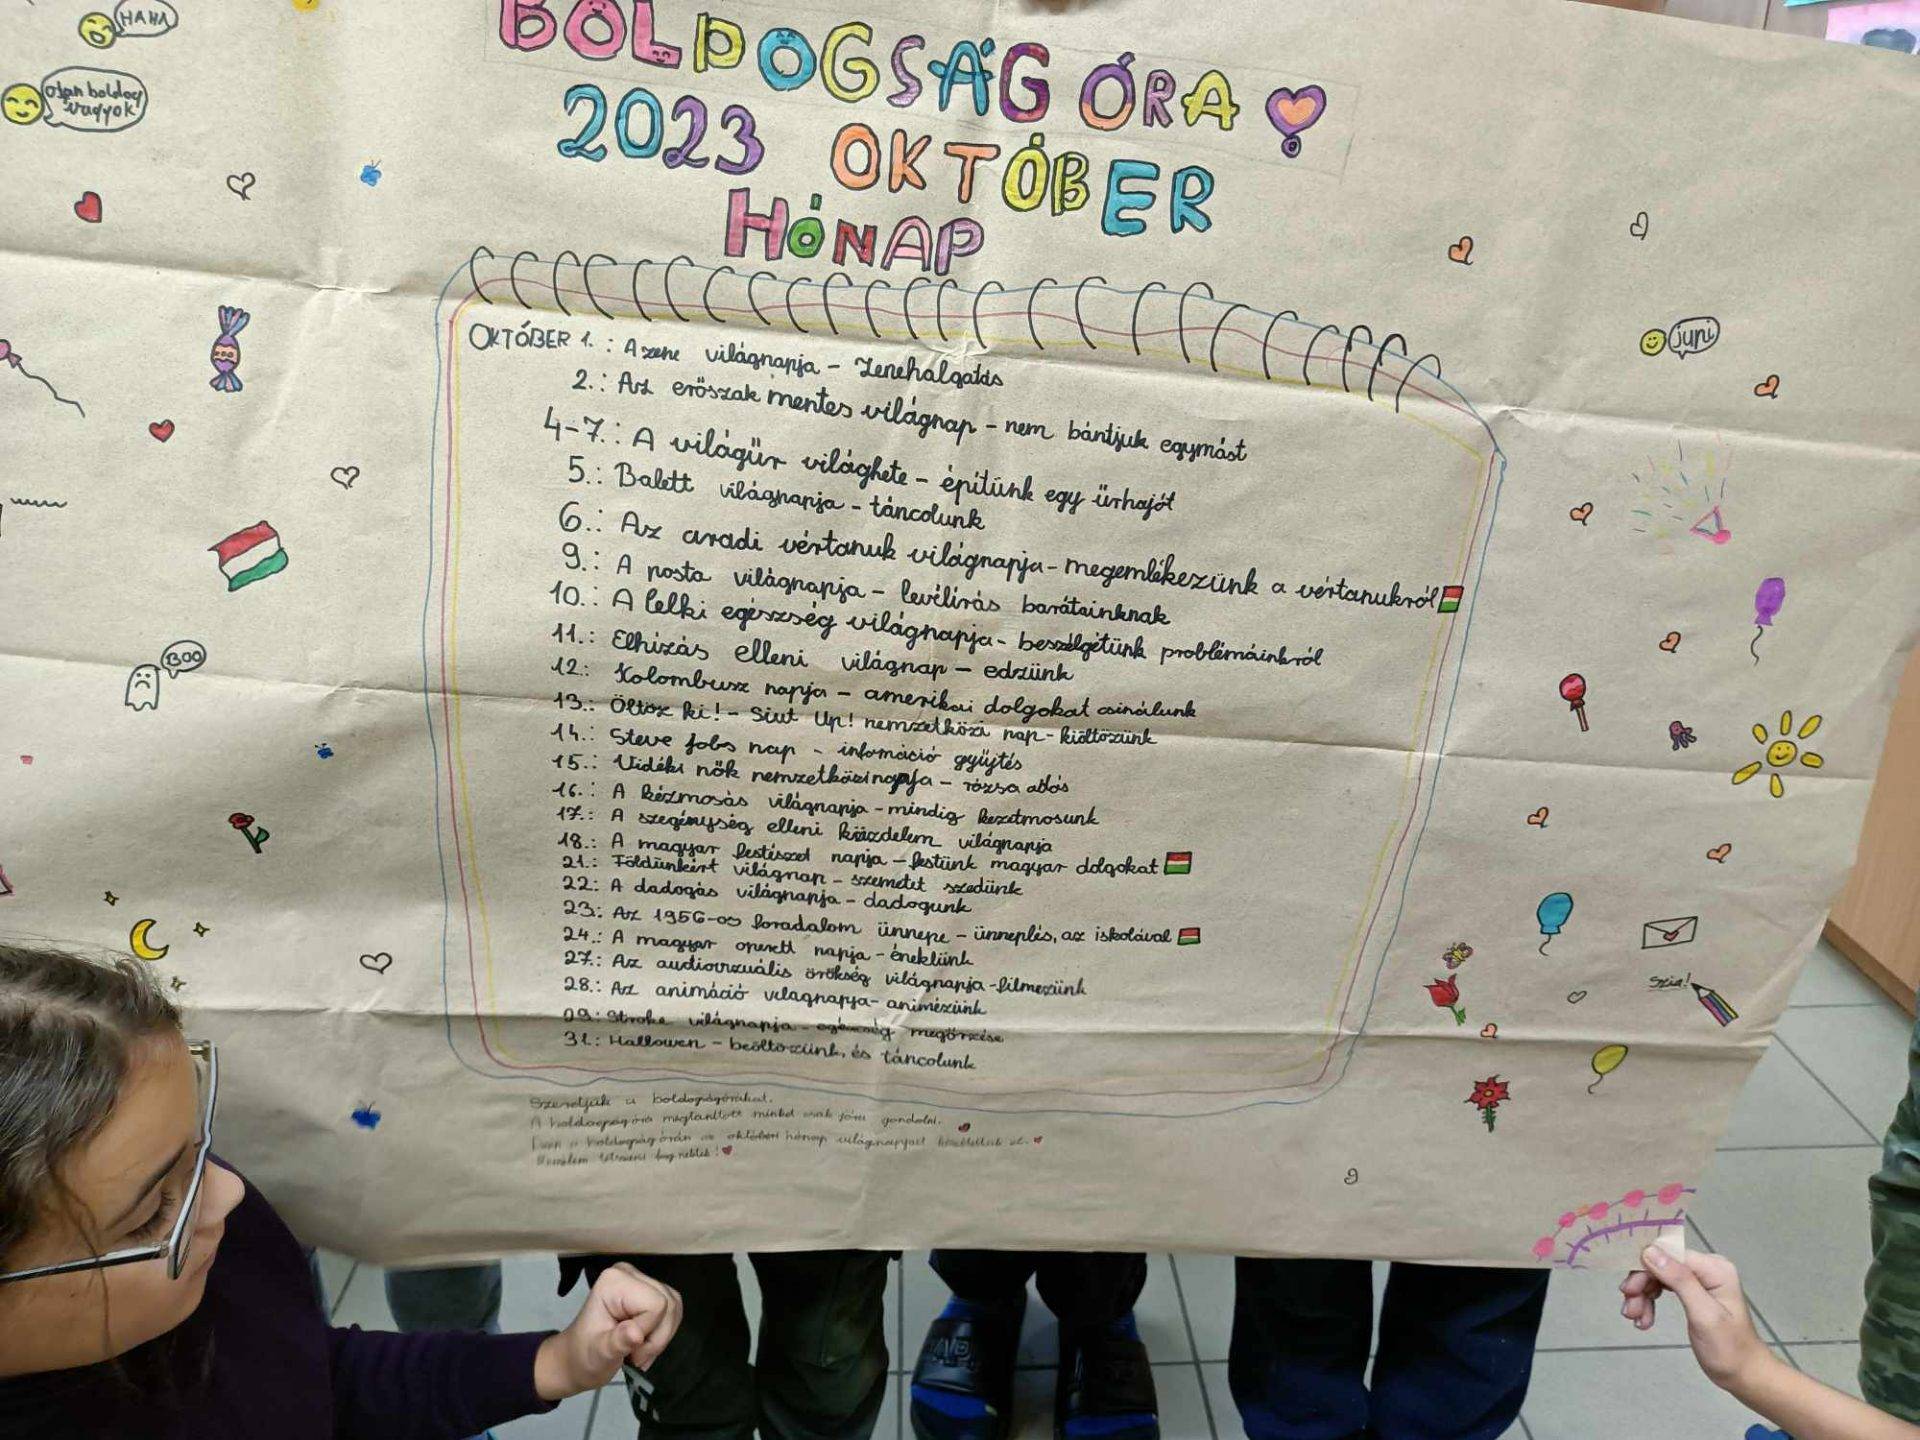 HAHA
olyan boldog
vagyok
BOLDOGSÁG ÓRA
2023 OKTÓBER
HÓNAP
juni
OKTÓBER 1.: A zene világnapja - Zenehalgatás
2.: Az erőszak mentes világnap - nem bántjuk egymást
4-7.: A világűr világhete - építünk egy űrhajót
5.: Balett világnapja - táncolunk
6.: Az aradi vértanuk világnapja - megemlékezünk a vértanukról
9.: A posta világnapja - levélírás barátainknak
10.: A lelki egészség világnapja - beszélgetünk problémáinkról
11.: Elhízás elleni világnap - edzünk
12.: Kolombusz napja - amerikai dolgokat csinálunk
13.: Öltöz ki! - Siut Up! nemzetközi nap - kiöltözünk
14.: Steve Jobs nap - információ gyűjtés
15.: Vidéki nők nemzetközi napja - rózsa adás
16.: A kézmosás világnapja - mindig kezetmosunk
17.: A szegénység elleni küzdelem világnapja
18.: A magyar festészet napja - festünk magyar dolgokat
21.: Földünkért világnap - szemetet szedünk
22.: A dadogás világnapja - dadogunk
23.: Az 1956-os foradalom ünnepe - ünneplés, az iskolával
24.: A magyar operett napja - éneklünk
27.: Az audiovizuális örökség világnapja - filmezünk
28.: Az animáció világnapja - animézünk
29.: Stroke világnapja - egészség megőrzése
31.: Hallowen - beöltözünk, és táncolunk
BOO
Szia!
Szeretjük a boldogságórákat.
A boldogság óra megtanított minket csak jóra gondolni.
Ezen a boldogság órán az októberi hónap világnapjait